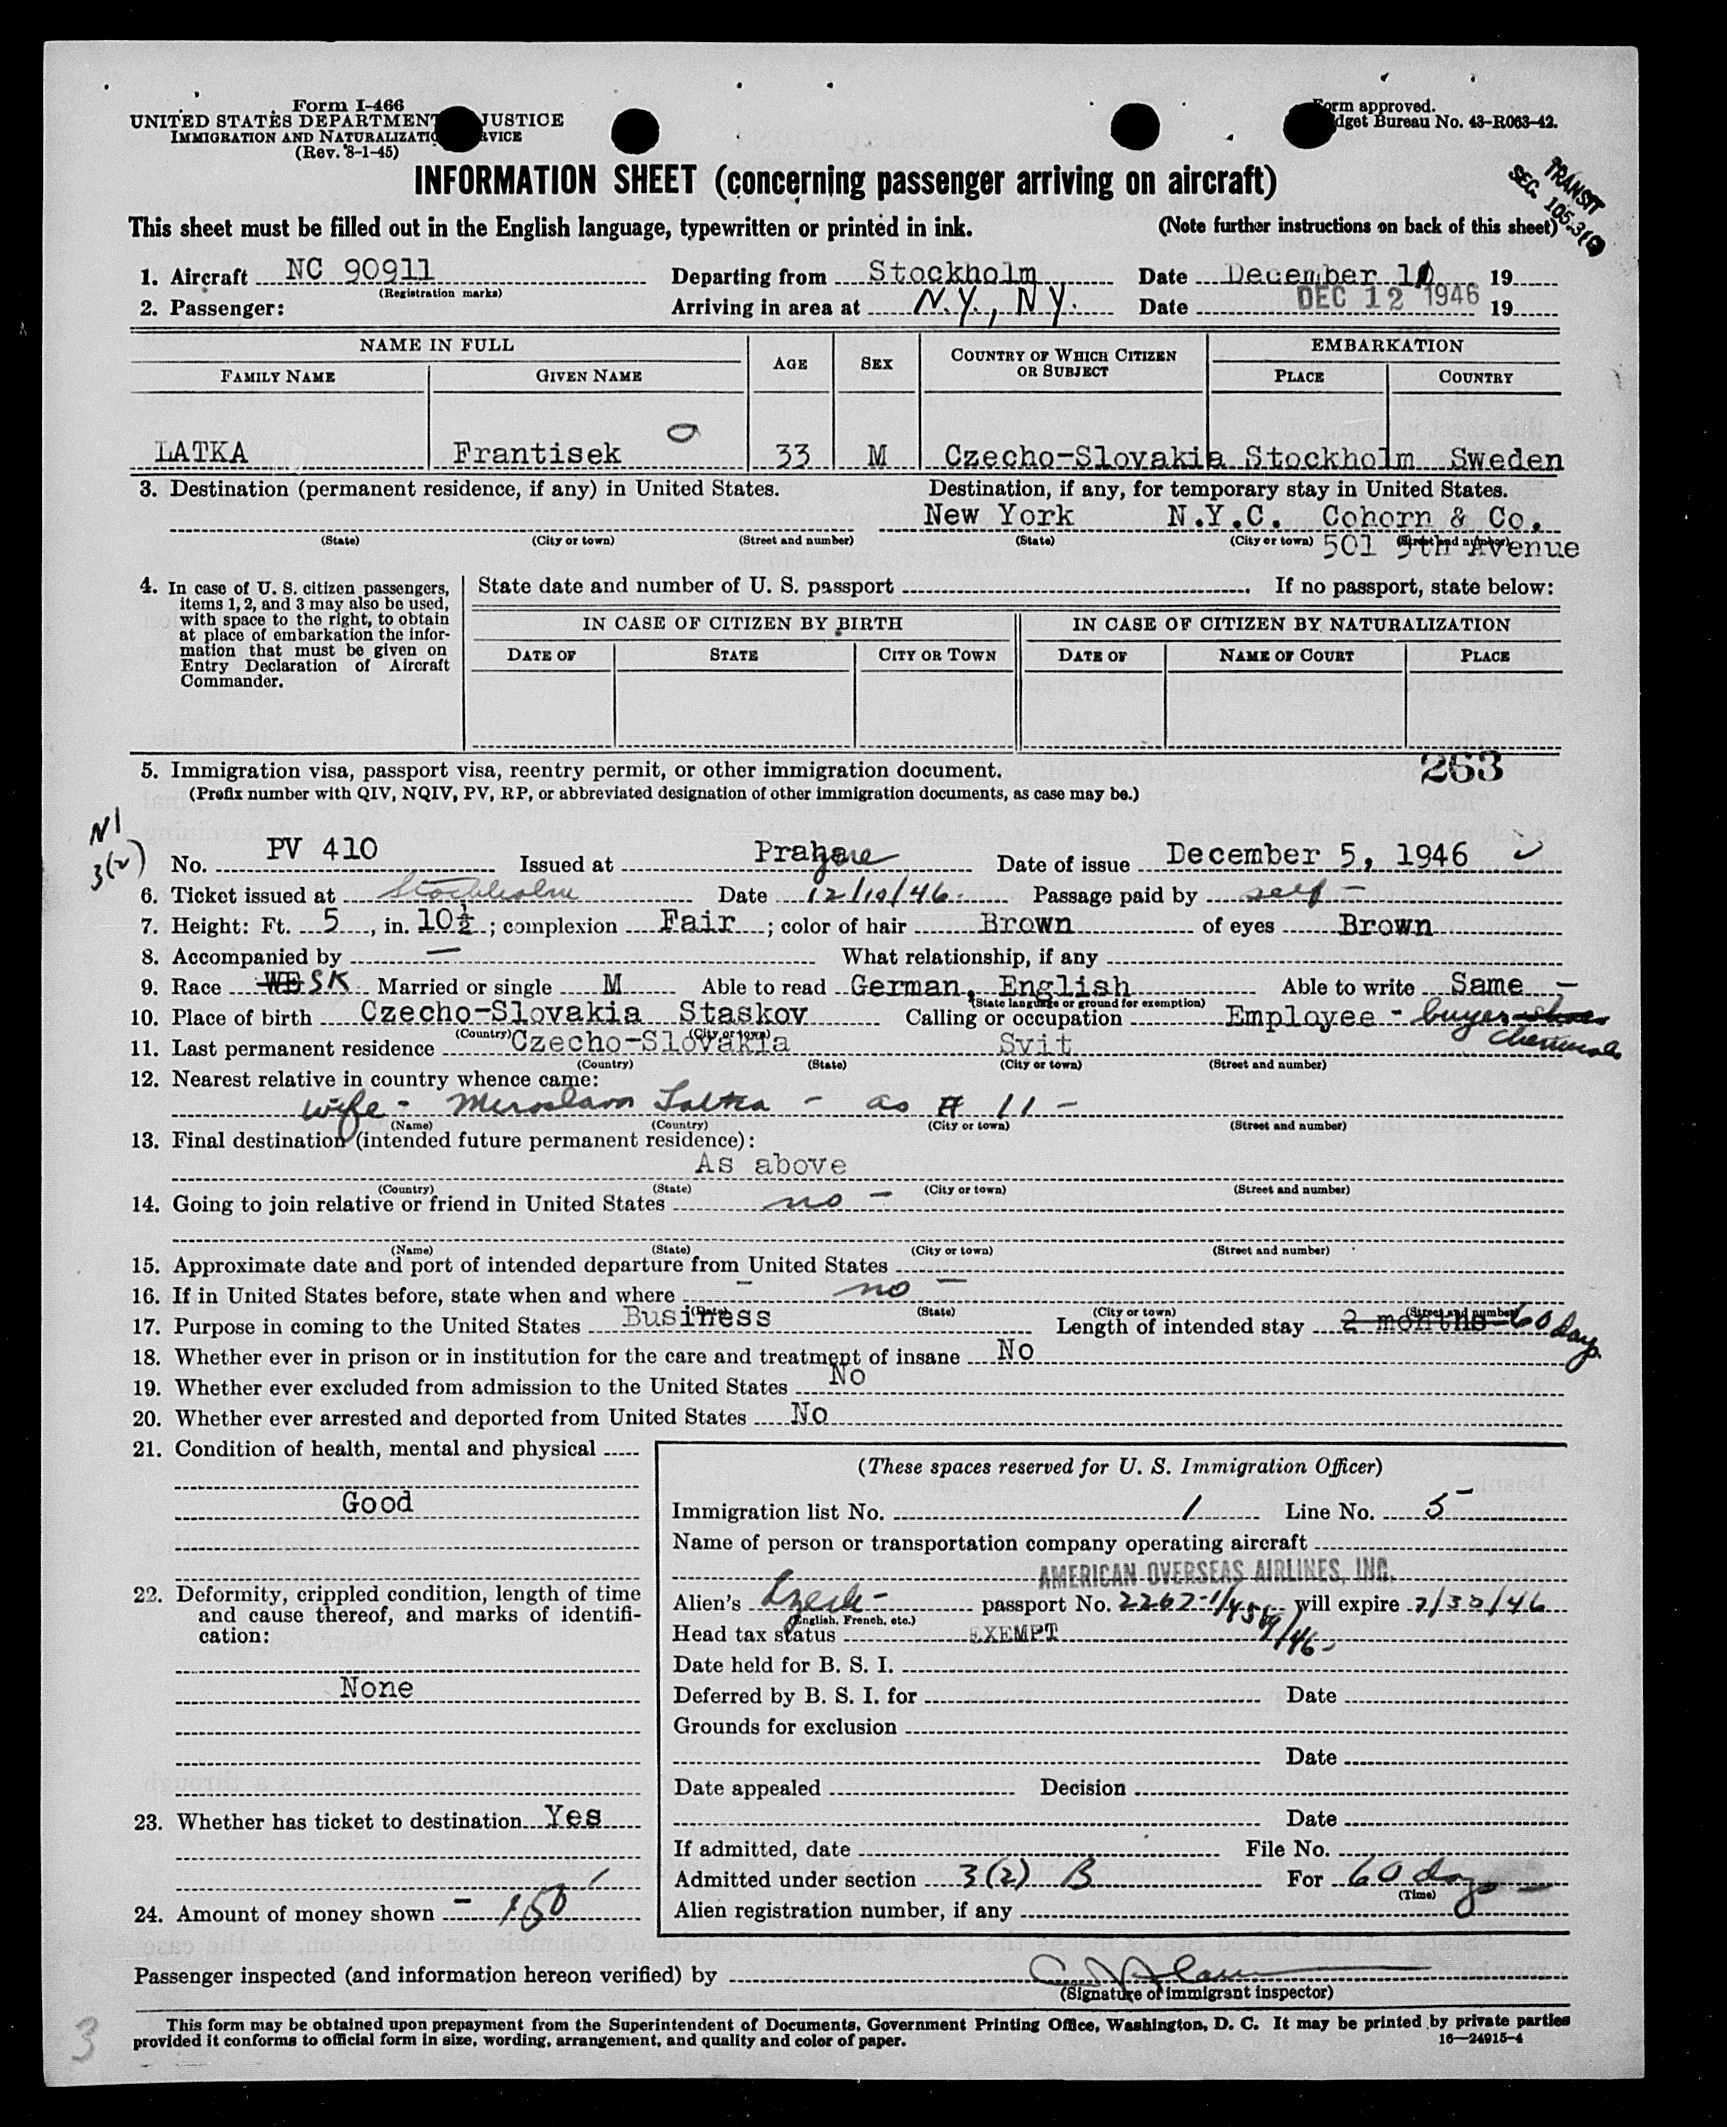 Form I-466
UNITED STATES DEPARTMENT JUSTICE
IMMIGRATION AND NATURALIZATIO RVICE
(Rev. 8-1-45)
Form approved.
dget Bureau No. 43-R063-42.
INFORMATION SHEET (concerning passenger arriving on aircraft)
TRANSIT
SEC. 105.3
This sheet must be filled out in the English language, typewritten or printed in ink. (Note further instructions on back of this sheet)
1. Aircraft NC 90911 Departing from Stockholm Date December 19
(Registration marks)
2. Passenger: Arriving in area at N.Y., N.Y. Date DEC 12 1946 19
NAME IN FULL AGE SEX COUNTRY OF WHICH CITIZEN OR SUBJECT EMBARKATION
FAMILY NAME GIVEN NAME PLACE COUNTRY
LATKA Frantisek 33 M Czecho-Slovakia Stockholm Sweden
3. Destination (permanent residence, if any) in United States. Destination, if any, for temporary stay in United States.
New York N.Y.C. Cohorn & Co.
(State) (City or town) (Street and number) (State) (City or town) (Street and number)
501 5th Avenue
4. In case of U. S. citizen passengers, items 1, 2, and 3 may also be used, with space to the right, to obtain at place of embarkation the information that must be given on Entry Declaration of Aircraft Commander.
State date and number of U. S. passport . If no passport, state below:
IN CASE OF CITIZEN BY BIRTH IN CASE OF CITIZEN BY NATURALIZATION
DATE OF STATE CITY OR TOWN DATE OF NAME OF COURT PLACE
263
5. Immigration visa, passport visa, reentry permit, or other immigration document.
(Prefix number with QIV, NQIV, PV, RP, or abbreviated designation of other immigration documents, as case may be.)
N1
3(2)
No. PV 410 Issued at Date of issue December 5, 1946
6. Ticket issued at Stockholm Date 12/10/46. Passage paid by self -
7. Height: Ft. 5, in. 10½; complexion Fair; color of hair Brown of eyes Brown
8. Accompanied by — What relationship, if any
9. Race WE SK Married or single M Able to read German, English Able to write Same -
(State language or ground for exemption)
10. Place of birth Czecho-Slovakia Staskov Calling or occupation Employee - buyer shoes
(Country) (City or town)
Chemicals
11. Last permanent residence Czecho-Slovakia Svit
(Country) (State) (City or town) (Street and number)
12. Nearest relative in country whence came:
wife - Miroslava Latka - as # 11 -
(Name) (Country) (City or town) (Street and number)
13. Final destination (intended future permanent residence):
As above
(Country) (State) (City or town) (Street and number)
14. Going to join relative or friend in United States no -
(Name) (State) (City or town) (Street and number)
15. Approximate date and port of intended departure from United States
16. If in United States before, state when and where no -
(Date) (State) (City or town) (Street and number)
17. Purpose in coming to the United States Business Length of intended stay 2 months 60 days
18. Whether ever in prison or in institution for the care and treatment of insane No
19. Whether ever excluded from admission to the United States No
20. Whether ever arrested and deported from United States No
21. Condition of health, mental and physical
Good
22. Deformity, crippled condition, length of time and cause thereof, and marks of identification:
None
23. Whether has ticket to destination Yes
24. Amount of money shown - 150
(These spaces reserved for U. S. Immigration Officer)
Immigration list No. 1 Line No. 5
Name of person or transportation company operating aircraft
AMERICAN OVERSEAS AIRLINES, INC.
Alien's Czech - passport No. will expire
(English, French, etc.)
Head tax status EXEMPT
Date held for B. S. I.
Deferred by B. S. I. for Date
Grounds for exclusion
Date
Date appealed Decision
Date
If admitted, date File No.
Admitted under section 3(2) B For 60 days
(Time)
Alien registration number, if any
Passenger inspected (and information hereon verified) by
(Signature of immigrant inspector)
This form may be obtained upon prepayment from the Superintendent of Documents, Government Printing Office, Washington, D. C. It may be printed by private parties
provided it conforms to official form in size, wording, arrangement, and quality and color of paper. 16—24915-4
3